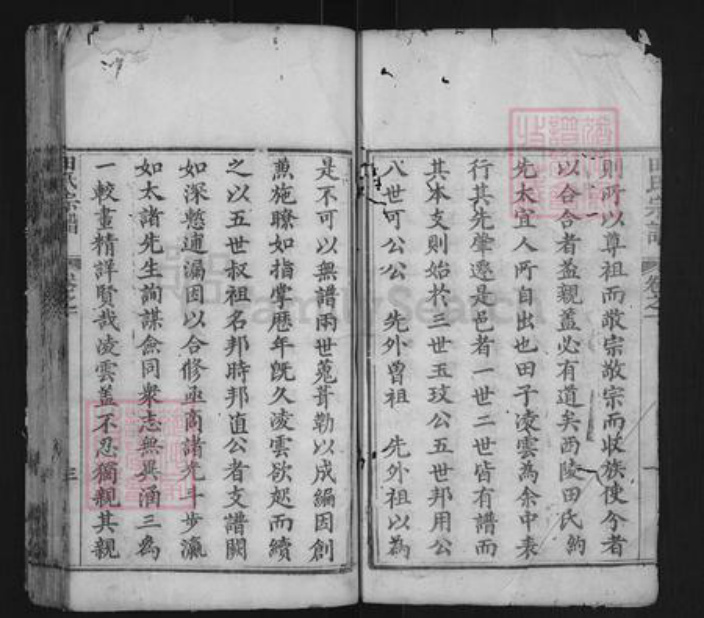 則所以尊祖而敬宗敬宗而收族使今者
以合合者益親蓋必有道矣西陵田氏約
先太宜人所自出也田子凌雲為余中表
行其先肇遷是邑者一世二世皆有譜而
其本支則始於三世玉玟公五世邦用公
八世可公公　先外曽祖　先外祖以為
是不可以無譜兩世蒐葺勒以成編因創
爲施瞭如指掌歷年既久凌雲欲起而續
之以五世叔祖名邦時邦直公者支譜闕
如深愁遺漏因以合修亟商諸光斗步瀛
如太諸先生詢謀僉同衆志無異涵三為
一較畫精詳賢哉凌雲蓋不忍獨親其親
田氏宗譜
卷之一
三
田氏宗譜
卷之一
FamilySearch